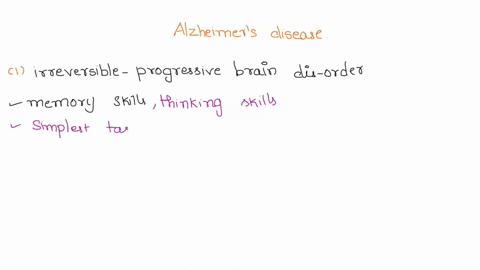 Alzheimer's disease.
(1) irreversible - progressive brain dis-order
✓ memory skills, thinking skills
✓ Simplest tas